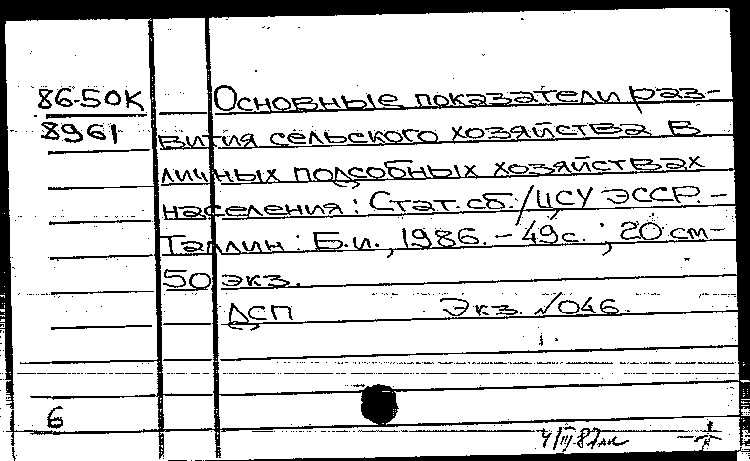 86-50К Основные показатели раз-
8961 вития сельского хозяйства в
личных подсобных хозяйствах
населения: Стат. сб. / ЦСУ ЭССР. -
Таллин: Б.и., 1986. - 49 с.; 20 см-
50 экз.
ДСП Экз. №046.
6
4/III 87